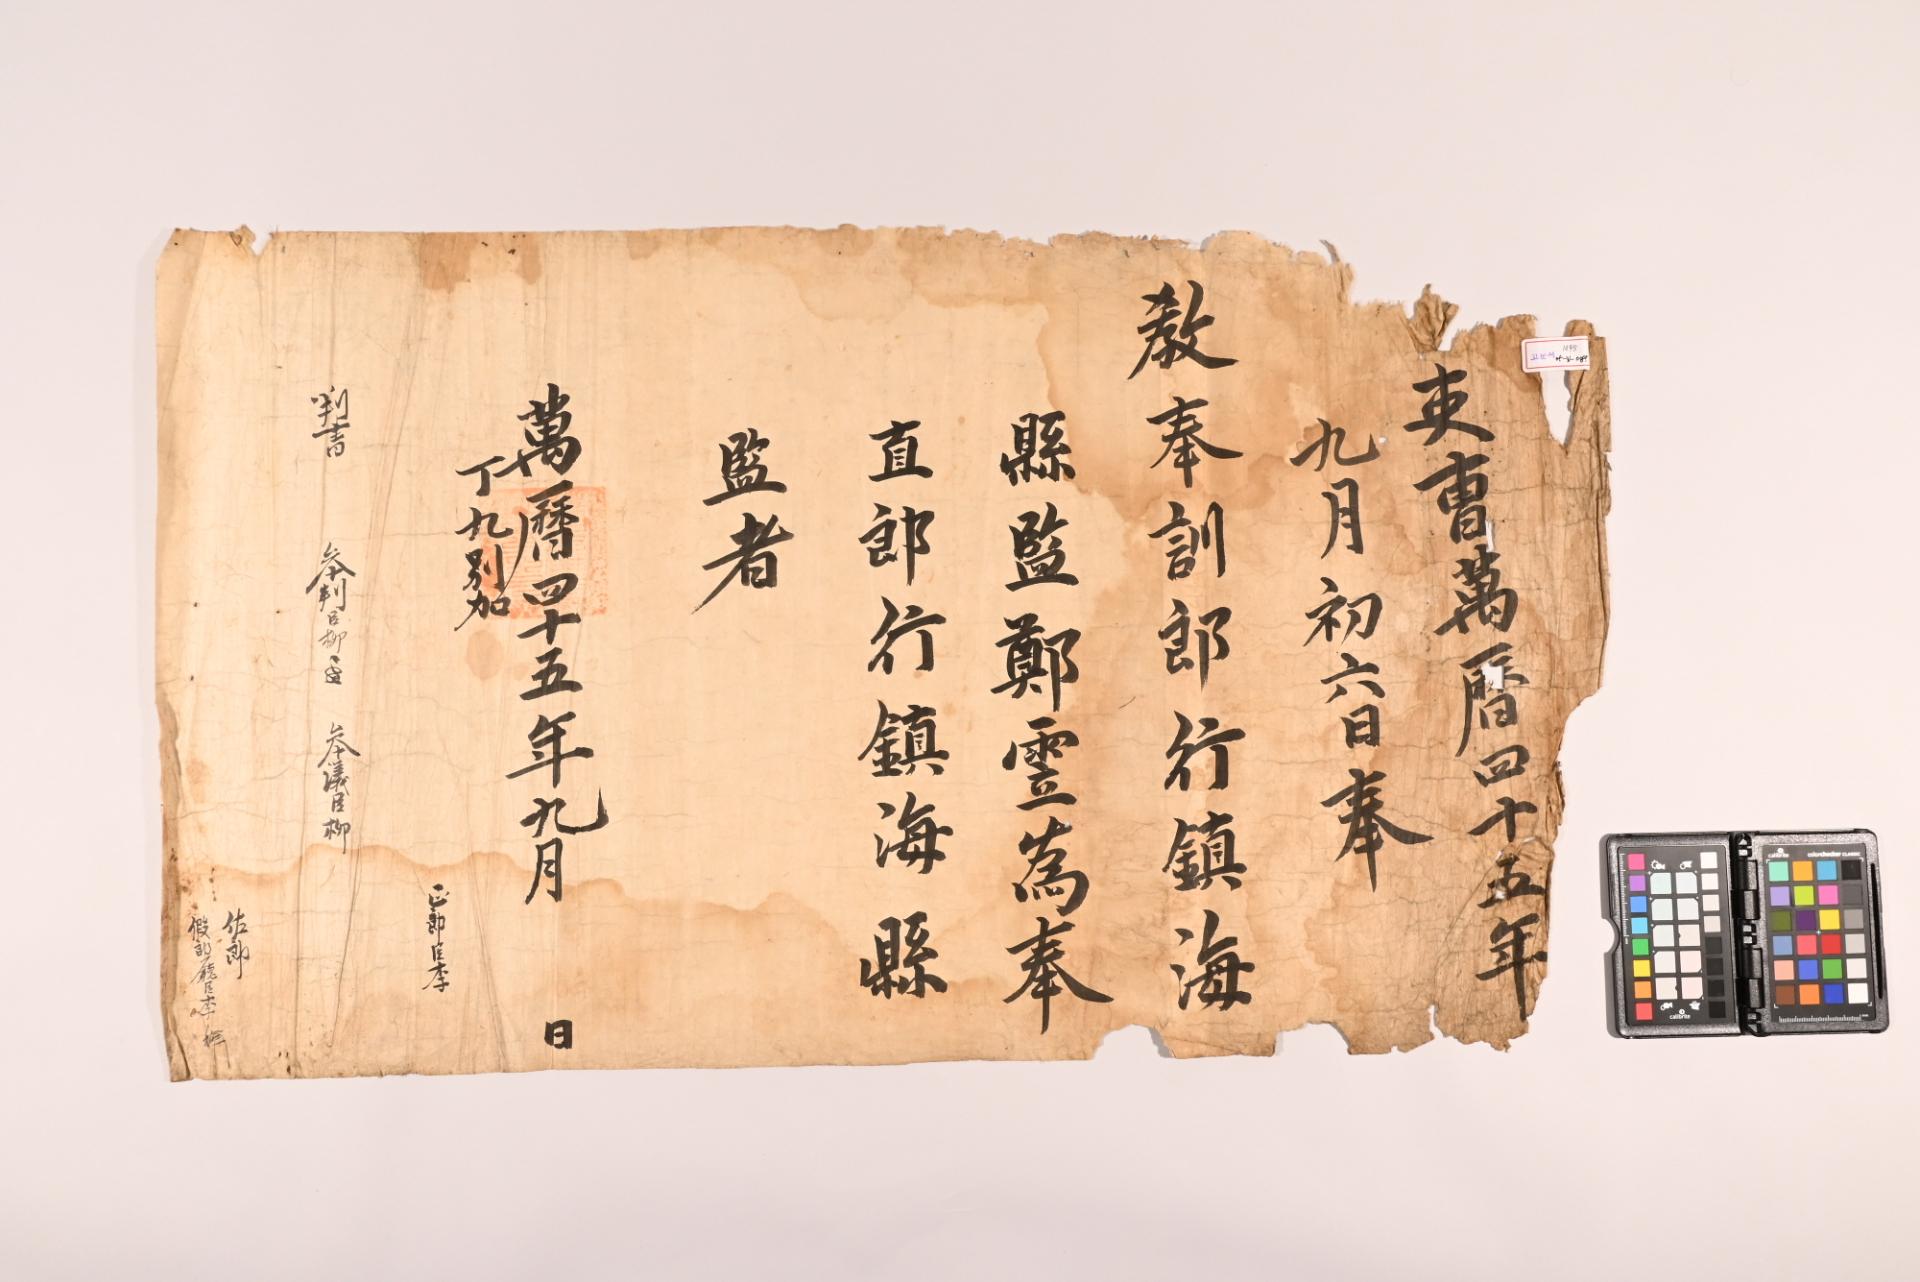 吏曹萬曆四十五年
九月初六日奉
敎奉訓郎行鎮海
縣監鄭霊為奉
直郎行鎮海縣
監者
萬曆四十五年九月 日
丁九別加
正郎臣李
判書 参判臣柳 参議臣柳
佐郎
假郎廳臣李
calibrite
calibrite colorchecker CLASSIC